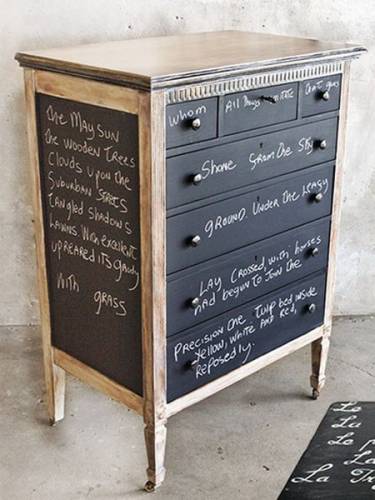 The May Sun
the wooden Trees
Clouds upon the
Suburban Streets
tangled Shadows
Lawns. With excellent
upreared its Gaudy
With
grass
Whom
All Things
that grass
Shone from the Sky
GROUND. Under the Leafy
LAY Crossed, with horses
had begun to Join the
PRECISION One Tulip bed inside
Yellow, white and red,
Reposedly.
Le
Lu
Le
La
La